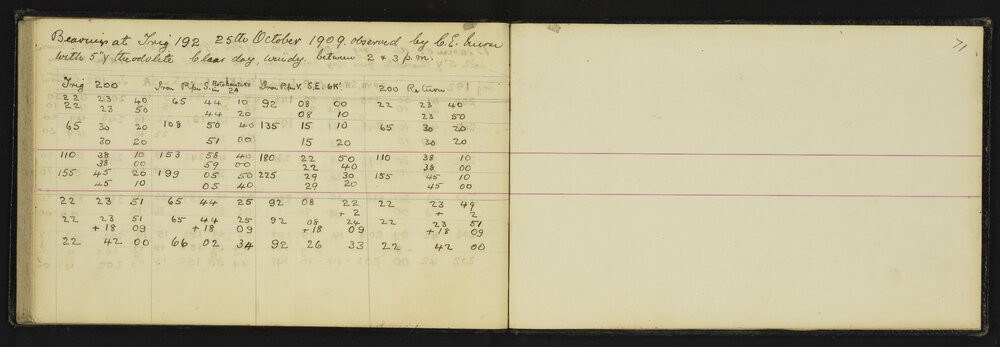 Bearings at Trig 192 25th October 1909. observed by C.E.
with 5" theodolite Clear day, windy, between 2 & 3 p.m.
71
Trig 200 Iron Pipe S. in 2A Iron Pipe V. S.E. 6K' 200 Return
22 23 40 65 44 10 92 08 00 22 23 40
22 23 50 44 20 08 10 23 50
65 30 20 108 50 40 135 15 10 65 30 20
30 20 51 00 15 20 30 20
110 38 10 153 58 40 180 22 50 110 38 10
38 00 59 00 22 40 38 00
155 45 20 199 05 50 225 29 30 155 45 10
45 10 05 40 29 20 45 00
22 23 51 65 44 25 92 08 22 22 23 49
+ 2 + 2
22 23 51 65 44 25 92 08 24 22 23 51
+ 18 09 + 18 09 + 18 09 + 18 09
22 42 00 66 02 34 92 26 33 22 42 00